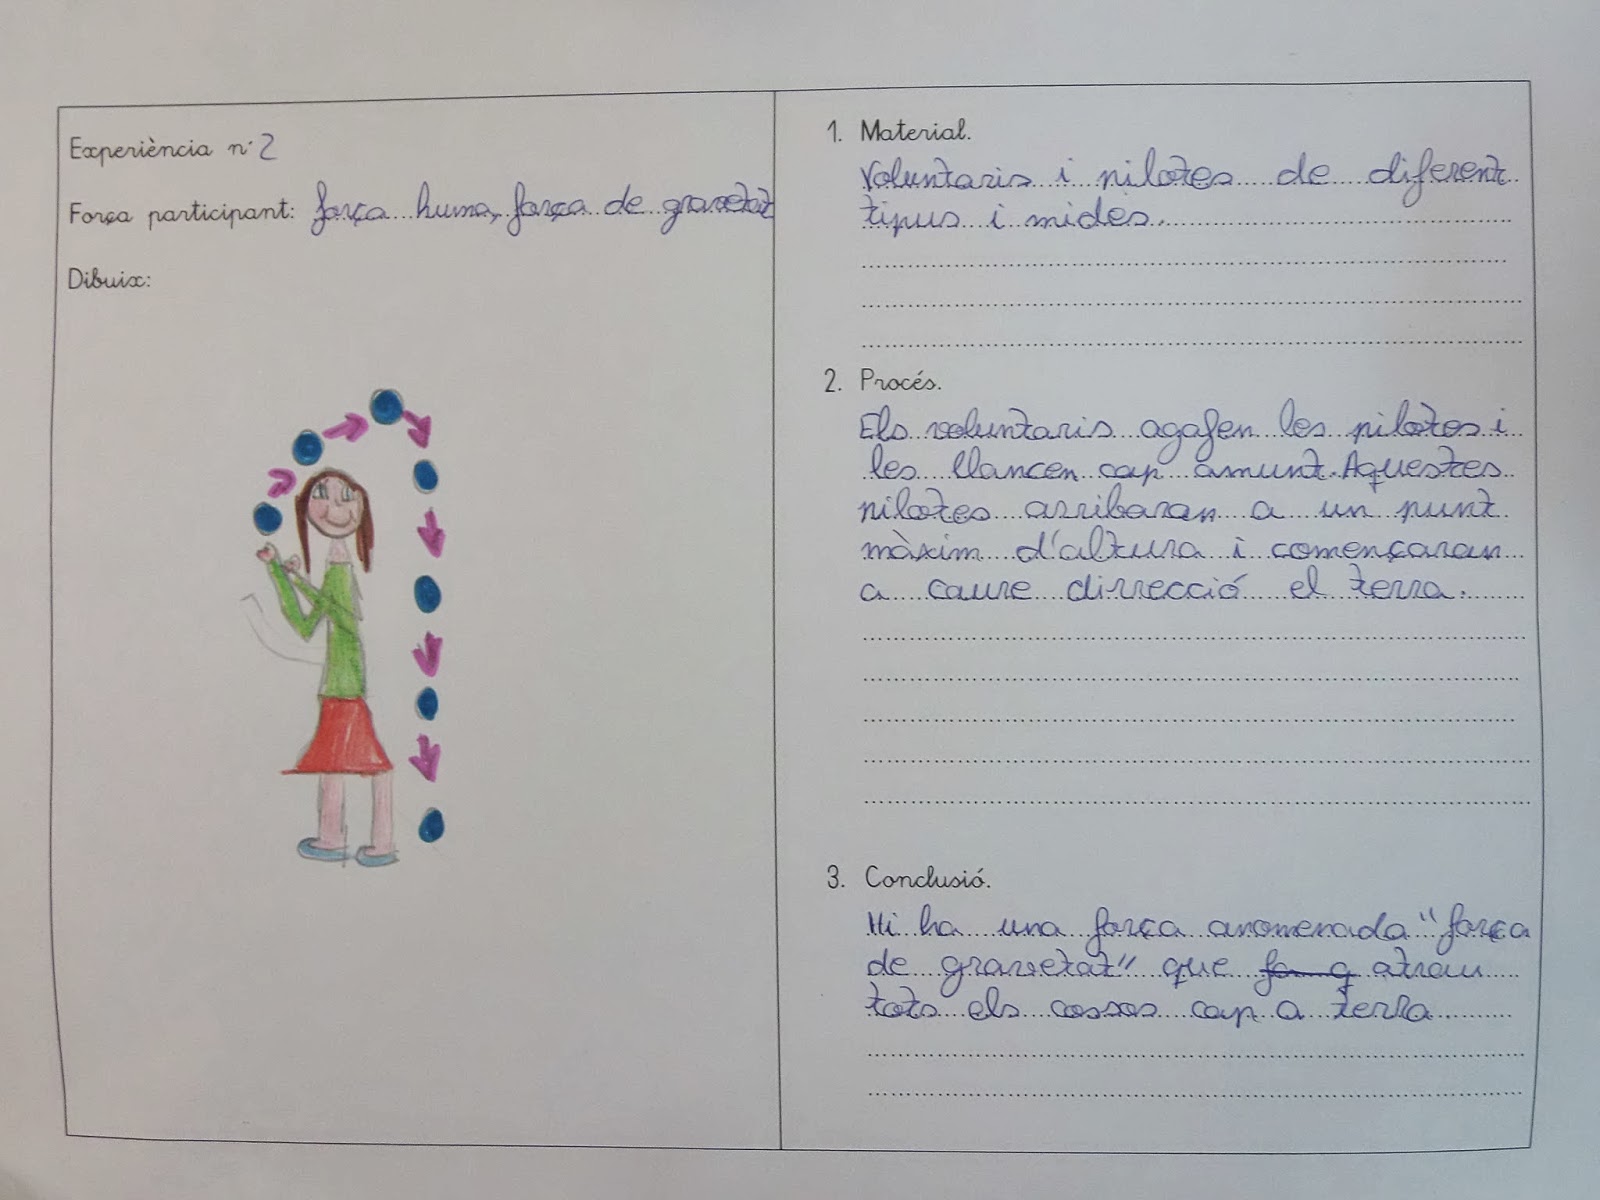 Experiència nº 2
Força participant: força huma, força de gravetat
Dibuix:
1. Material.
Voluntaris i pilotes de diferent
tipus i mides.
2. Procés.
Els voluntaris agafen les pilotes i
les llancen cap amunt. Aquestes
pilotes arribaran a un punt
màxim d'altura i començaran
a caure dirrecció el terra.
3. Conclusió.
Hi ha una força anomenada "força
de gravetat" que atrau
tots els cossos cap a terra